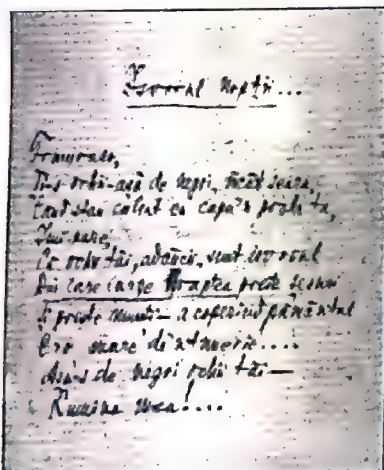 Izvorul nopții...
Frumoaso,
Ți-s ochii-așă de negri, încât seara,
Când stau culcat cu capu'n poala ta,
Îmi pare,
Că ochii tăi, adânci, sunt izvorul
Din care curge Noaptea peste șesuri
Și peste munți — acoperind pământul
C'o mare de'ntuneric....
Așa-s de negri ochii tăi —
Lumina mea!....